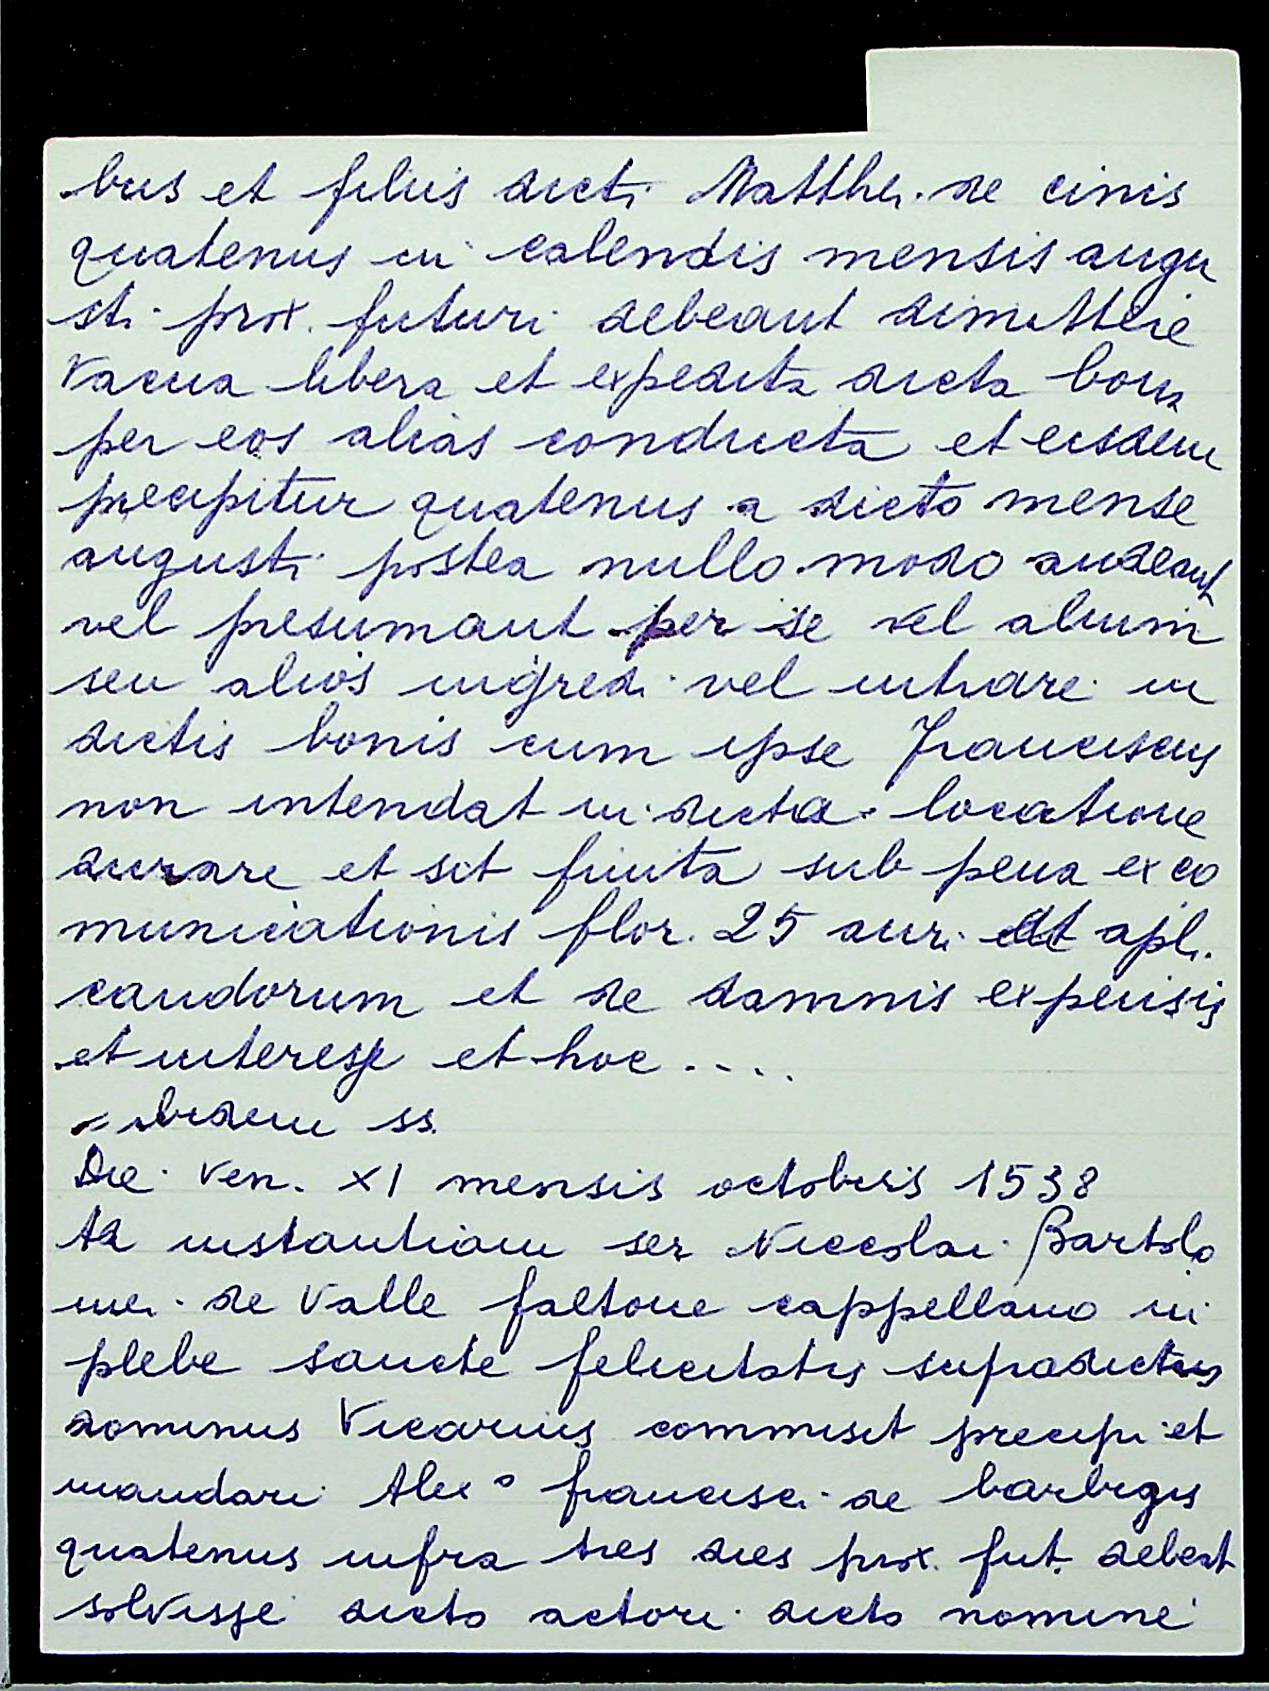 bus et filiis dicti Matthei de cinis
quatenus in calendis mensis augu
sti prox. futuri debeant dimittere
vacua libera et expedita dicta bona
per eos alias conducta et eisdem
precipitur quatenus a dicto mense
augusti postea nullo modo audeant
vel presumant per se vel alium
seu alios ingredi vel intrare in
dictis bonis cum ipse Franciscus
non intendat in dicta locatione
durare et sit finita sub pena exco
municationis flor. 25 auri apli.
candorum et de damnis expensis
et interesse et hoc ....
ibidem ss.
Die Ven. XI mensis octobris 1538
Ad instantiam ser Niccolai Bartolo
mei de Valle faltone cappellano in
plebe sancte felicitatis supradictus
dominus Vicarius commisit precipi et
mandari Alex° francisci de barbigis
quatenus infra tres dies prox. fut. debeat
solvisse dicto actori dicto nomine